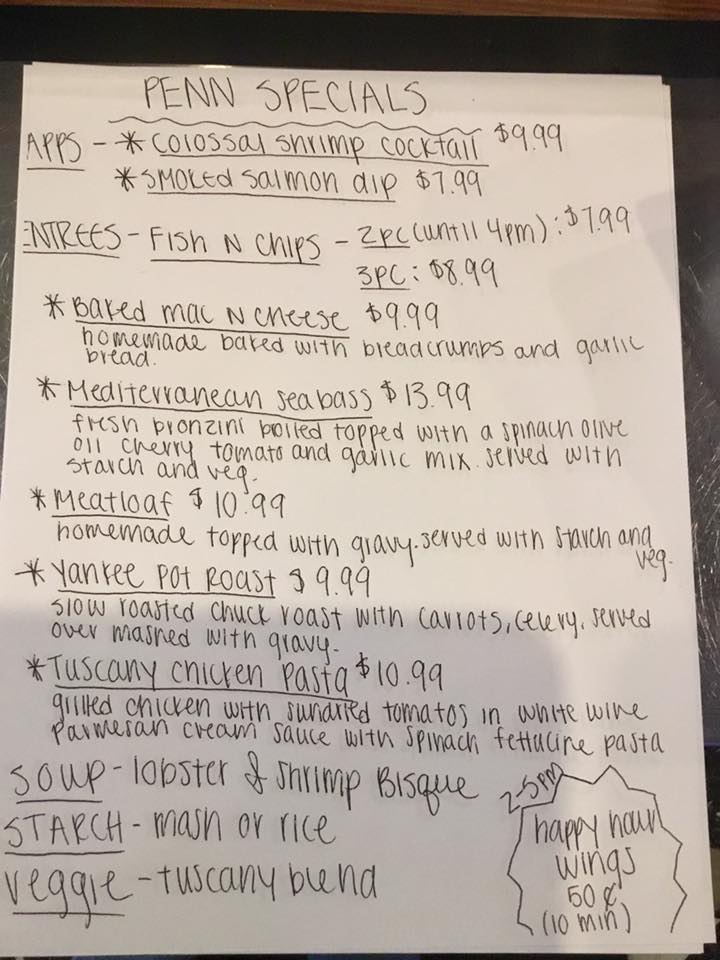 PENN SPECIALS
APPS - * COLOSSAL Shrimp COCKTAIL $9.99
* SMOKED SALMON DIP $7.99
ENTREES - FISH N CHIPS - 2PC (until 4pm): $7.99
3PC: $8.99
* BAKED MAC N CHEESE $9.99
homemade baked with breadcrumbs and garlic
bread.
* Mediterranean seabass $13.99
fresh bronzini broiled topped with a spinach olive
oil cherry tomato and garlic mix. served with
starch and veg.
* Meatloaf $10.99
homemade topped with gravy. served with starch and
veg.
* Yankee Pot Roast $9.99
slow roasted chuck roast with carrots, celery, served
over mashed with gravy.
* Tuscany chicken Pasta $10.99
grilled chicken with sundried tomatos in white wine
Parmesan cream sauce with spinach fettucine pasta
SOUP - lobster & shrimp Bisque
STARCH - mash or rice
Veggie - tuscany blend
2-5PM
happy hour
wings
50¢
(10 min)